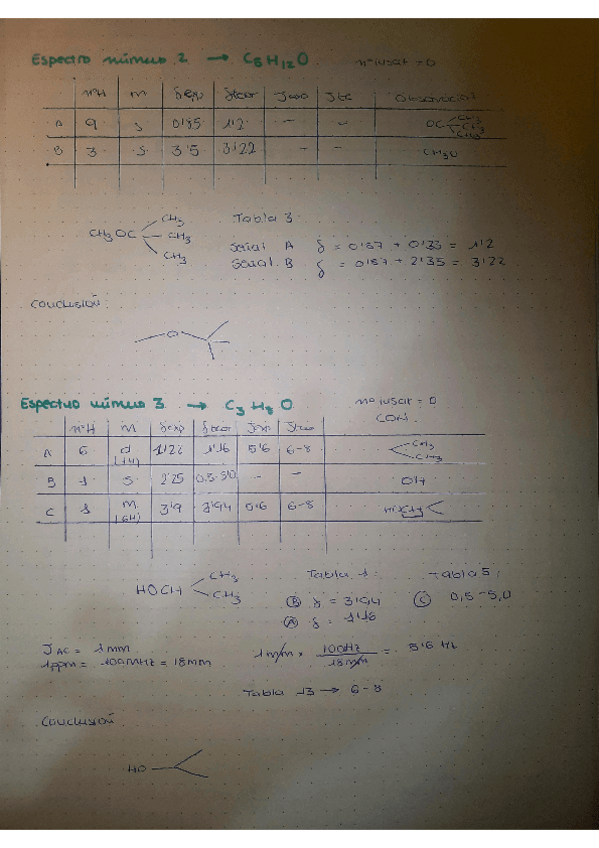 Espectro número 2 → C5H12O nº insat = 0
nºH m δexp δteor Jexp Jteo Observación
A 9 s 0'85 1'2 - - OC CH3 CH3 CH3
B 3 s 3'5 3'22 - - CH3O
CH3OC CH3 CH3 CH3
Tabla 3
Señal A δ = 0'87 + 0'33 = 1'2
Señal B δ = 0'87 + 2'35 = 3'22
Conclusión:
O
Espectro número 3 → C3H8O nº insat = 0
nºH m δexp δteor Jexp Jteo
A 6 d (1H) 1'22 1'16 5'6 6-8 CH3 CH3
B 1 s 2'25 - - OH
C 1 m (6H) 3'9 3'94 5'6 6-8
HOCH CH3 CH3
Tabla 1: Tabla 5:
B δ = 3'94 C 0,5-5,0
A δ = 1'16
JAC = 1mm
1ppm = 100MHz = 18mm
1mm × 100Hz / 18mm = 5'6 Hz
Tabla 13 → 6-8
Conclusión:
HO